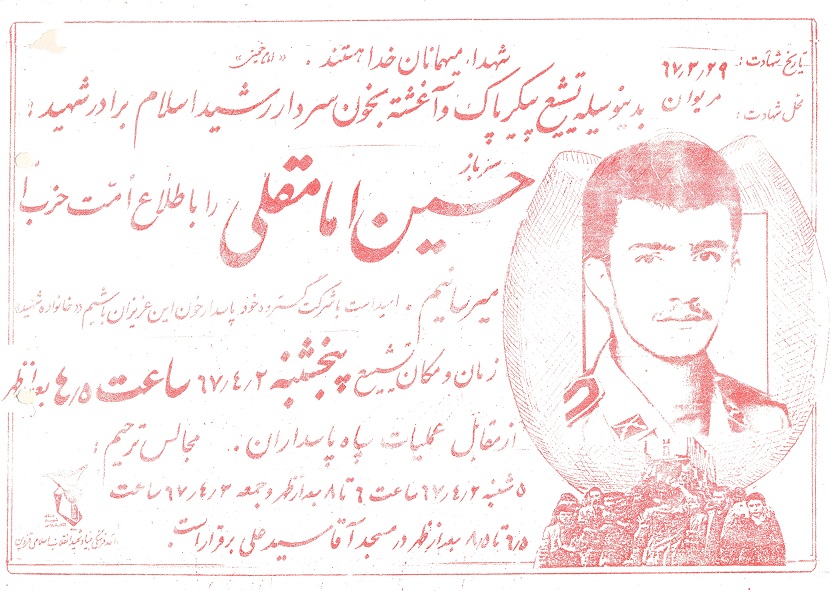 شهداء میهمانان خدا هستند . «امام خمینی»
تاریخ شهادت : ۶۷٫۳٫۲۹
محل شهادت : مریوان
بدینوسیله تشییع پیکر پاک و آغشته بخون سردار رشید اسلام برادر شهید :
سرباز
حسین امامقلی را باطلاع امت حزب ا
میرسانیم . امید است با شرکت گسترده خود پاسدار خون این عزیزان باشیم «خانواده شهید»
زمان و مکان تشییع پنجشنبه ۶۷٫۴٫۲ ساعت ۴٫۵ بعدازظهر
از مقابل عملیات سپاه پاسداران . مجالس ترحیم :
۵ شنبه ۶۷٫۴٫۲ ساعت ۶ تا ۸ بعدازظهر و جمعه ۶۷٫۴٫۳ ساعت
۶٫۵ تا ۸٫۵ بعدازظهر در مسجد آقا سید علی برقرار است.
فرهنگی بنیاد شهید انقلاب اسلامی قزوین